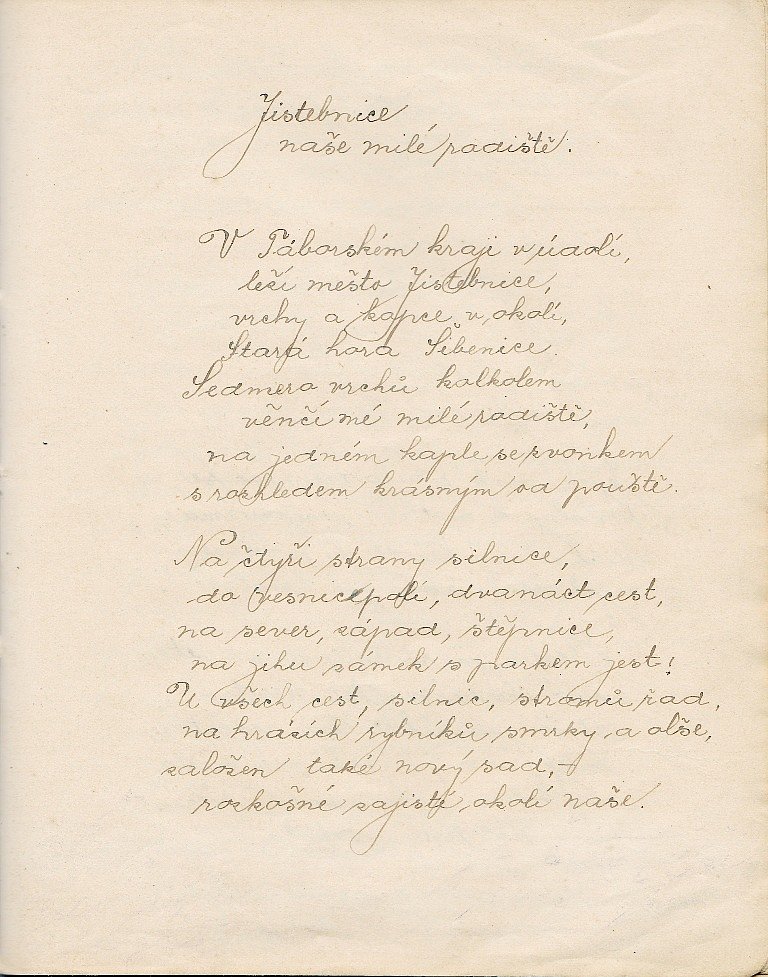 Jistebnice
naše milé rodiště.
V Táborském kraji v údolí,
leží mešto Jistebnice,
vrchy a kopce v okolí,
Stará hora Šibenice.
Sedmero vrchů kolkolem
věnčí mé milé rodiště,
na jedném kaple se zvonkem
s rozhledem krásným od pouště.
Na čtyři strany silnice,
do vesnic polí, dvanáct cest,
na sever, západ, štěpnice,
na jihu zámek s parkem jest!
U všech cest, silnic, stromů řad,
na hrázích rybníků smrky a olše,
založen také nový sad, –
rozkošné zajisté okolí naše.